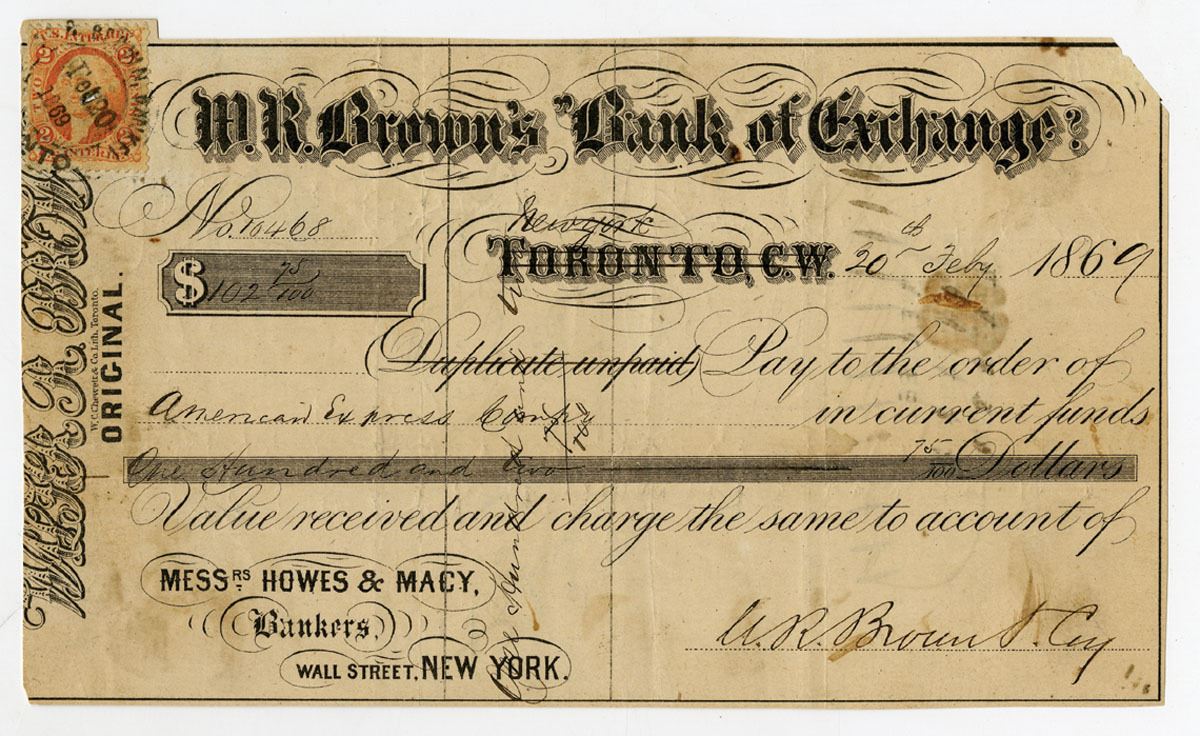 U.S. INTER. REV.
TORONTO
W.R. Brown's "Bank of Exchange"
No. 10468
New York
TORONTO, C.W. 20th Feby 1869
$102 75/100
(Duplicate unpaid) Pay to the order of
American Express Compy in current funds
One Hundred and two 75/100 Dollars
Value received and charge the same to account of
MESSRS HOWES & MACY,
Bankers,
WALL STREET, NEW YORK.
W. R. Brown & Coy
ORIGINAL.
W. C. Chewett & Co. Lith. Toronto.
One Hundred
75/100